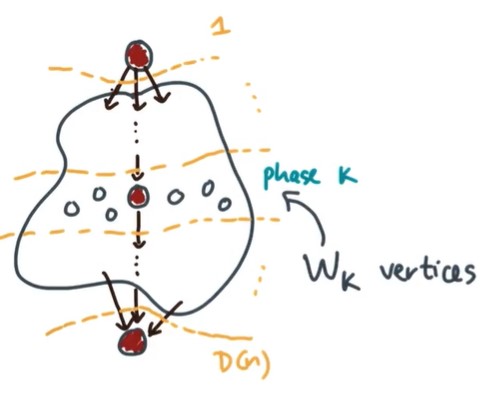 1
phase K
W_K vertices
D(n)